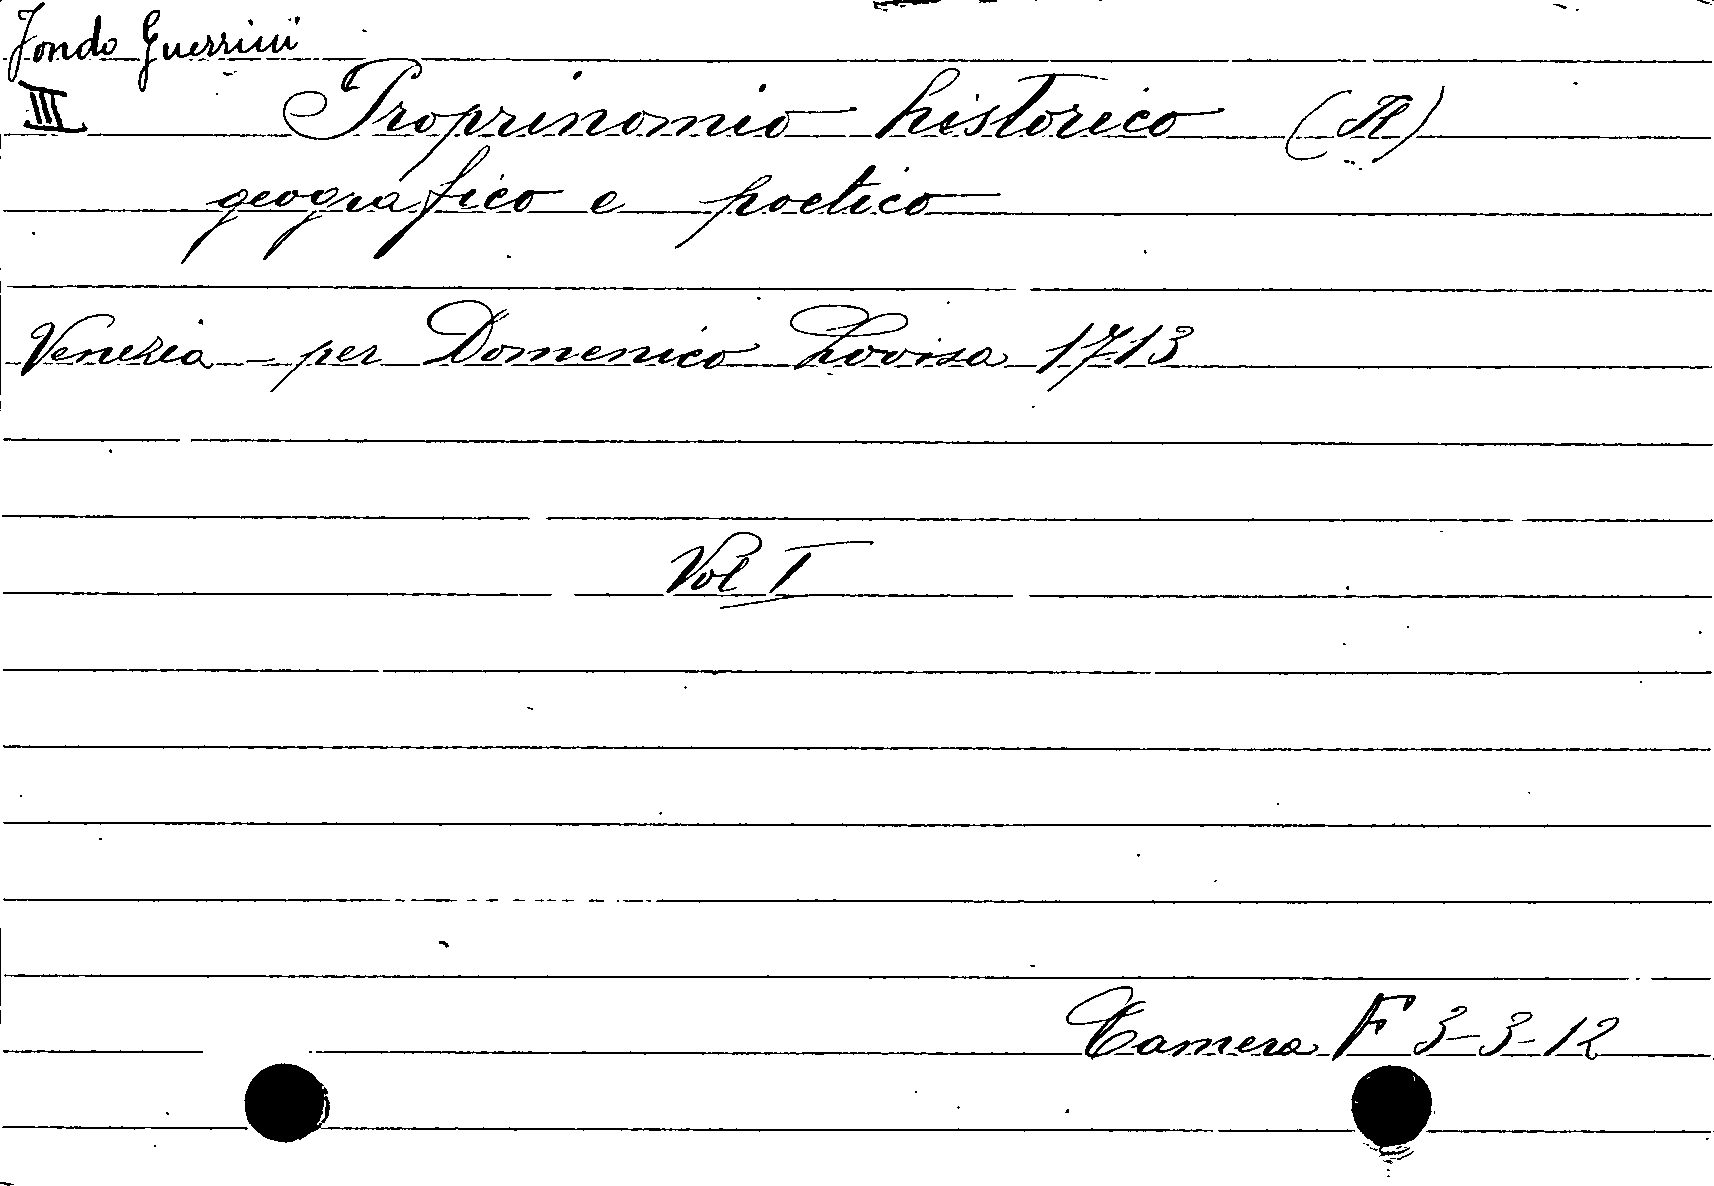 Fondo Guerrini
III Proprinomio historico (Il)
geografico e poetico
Venezia - per Domenico Lovisa 1713
Vol I
Camera F 3-3-12